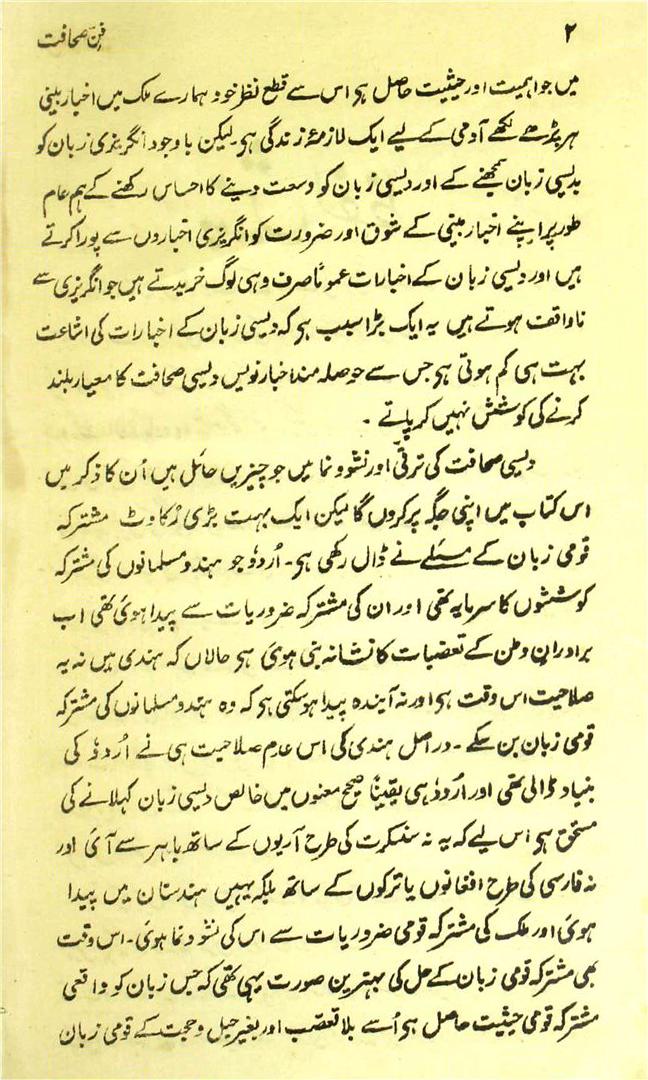 ۲
فنِ صحافت
میں جو اہمیت اور حیثیت حاصل ہی اس سے قطع نظر خود ہمارے ملک میں اخبار بینی
ہر پڑھے لکھے آدمی کے لیے ایک لازمۂ زندگی ہی لیکن باوجود انگریزی زبان کو
بدیسی زبان سمجھنے کے اور دیسی زبان کو وسعت دینے کا احساس رکھنے کے ہم عام
طور پر اپنے اخبار بینی کے شوق اور ضرورت کو انگریزی اخباروں سے پورا کرتے
ہیں اور دیسی زبان کے اخبارات عموماً صرف وہی لوگ خریدتے ہیں جو انگریزی سے
ناواقف ہوتے ہیں یہ ایک بڑا سبب ہی کہ دیسی زبان کے اخبارات کی اشاعت
بہت ہی کم ہوتی ہی جس سے حوصلہ مند اخبار نویس دیسی صحافت کا معیار بلند
کرنے کی کوشش نہیں کر پاتے ۔
دیسی صحافت کی ترقی اور نشوونما میں جو چیزیں حائل ہیں اُن کا ذکر میں
اس کتاب میں اپنی جگہ پر کروں گا لیکن ایک بہت بڑی رُکاوٹ مشترکہ
قومی زبان کے مسئلے نے ڈال رکھی ہی ۔ اُردؤ جو ہندو مسلمانوں کی مشترکہ
کوششوں کا سرمایہ تھی اور ان کی مشترکہ ضروریات سے پیدا ہوئ تھی اب
برادرانِ وطن کے تعصبات کا نشانہ بنی ہوئ ہی حالاں کہ ہندی میں نہ یہ
صلاحیت اس وقت ہی اور نہ آیندہ پیدا ہوسکتی ہی کہ وہ ہندو مسلمانوں کی مشترکہ
قومی زبان بن سکے ۔ دراصل ہندی کی اس عدم صلاحیت ہی نے اُردؤ کی
بنیاد ڈالی تھی اور اُردؤ ہی یقیناً صحیح معنوں میں خالص دیسی زبان کہلانے کی
مستحق ہی اس لیے کہ یہ نہ سنسکرت کی طرح آریوں کے ساتھ باہر سے آئ اور
نہ فارسی کی طرح افغانوں یا ترکوں کے ساتھ بلکہ یہیں ہندستان میں پیدا
ہوئ اور ملک کی مشترکہ قومی ضروریات سے اس کی نشوونما ہوئ ۔ اس وقت
بھی مشترکہ قومی زبان کے حل کی بہترین صورت یہی تھی کہ جس زبان کو واقعی
مشترکہ قومی حیثیت حاصل ہی اُسے بلا تعصب اور بغیر حیل و حجت کے قومی زبان